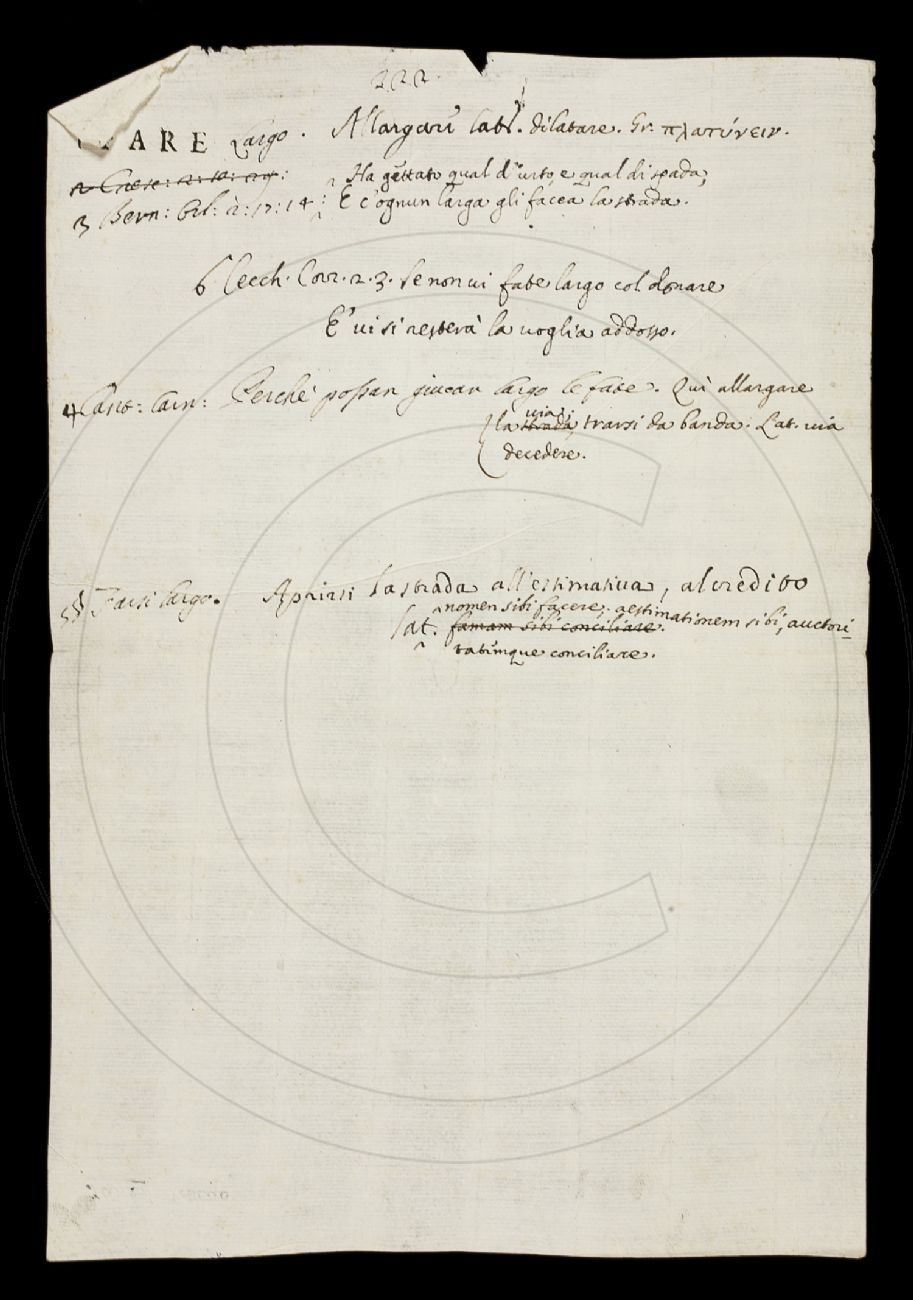 222.
ARE Largo. Allargare Lat. dilatare. Gr. πλατύνειν.
Ha gettato qual d'urto, e qual di spada,
3 Bern: Orl: 2: 17: 14: E c'ognun larga gli facea la strada.
6 Cecch. Corr. 2. 3. Se non vi fate largo col donare
E' vi si resterà la voglia addosso.
4 Cant: Carn: Perchè possan giucar largo le fate. Quì allargare
via,
la strada, trarsi da banda. Lat. via
decedere.
§ Farsi largo. Aprirsi la strada all'estimativa, al credito
nomen sibi facere, aestimationem sibi, auctori-
Lat. famam sibi conciliare.
tatemque conciliare.